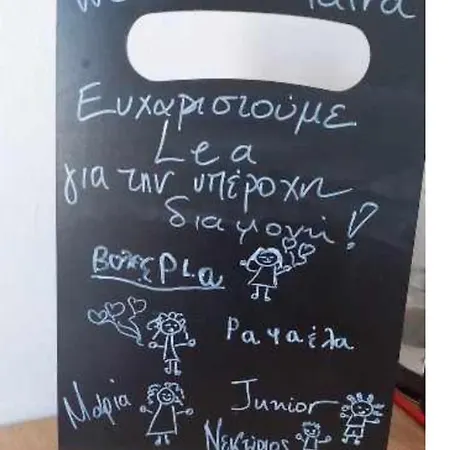 Ευχαριστούμε
Lea
για την υπέροχη
διαμονή!
Ραφαέλα
Μαρία
Junior
Νεκτάριος